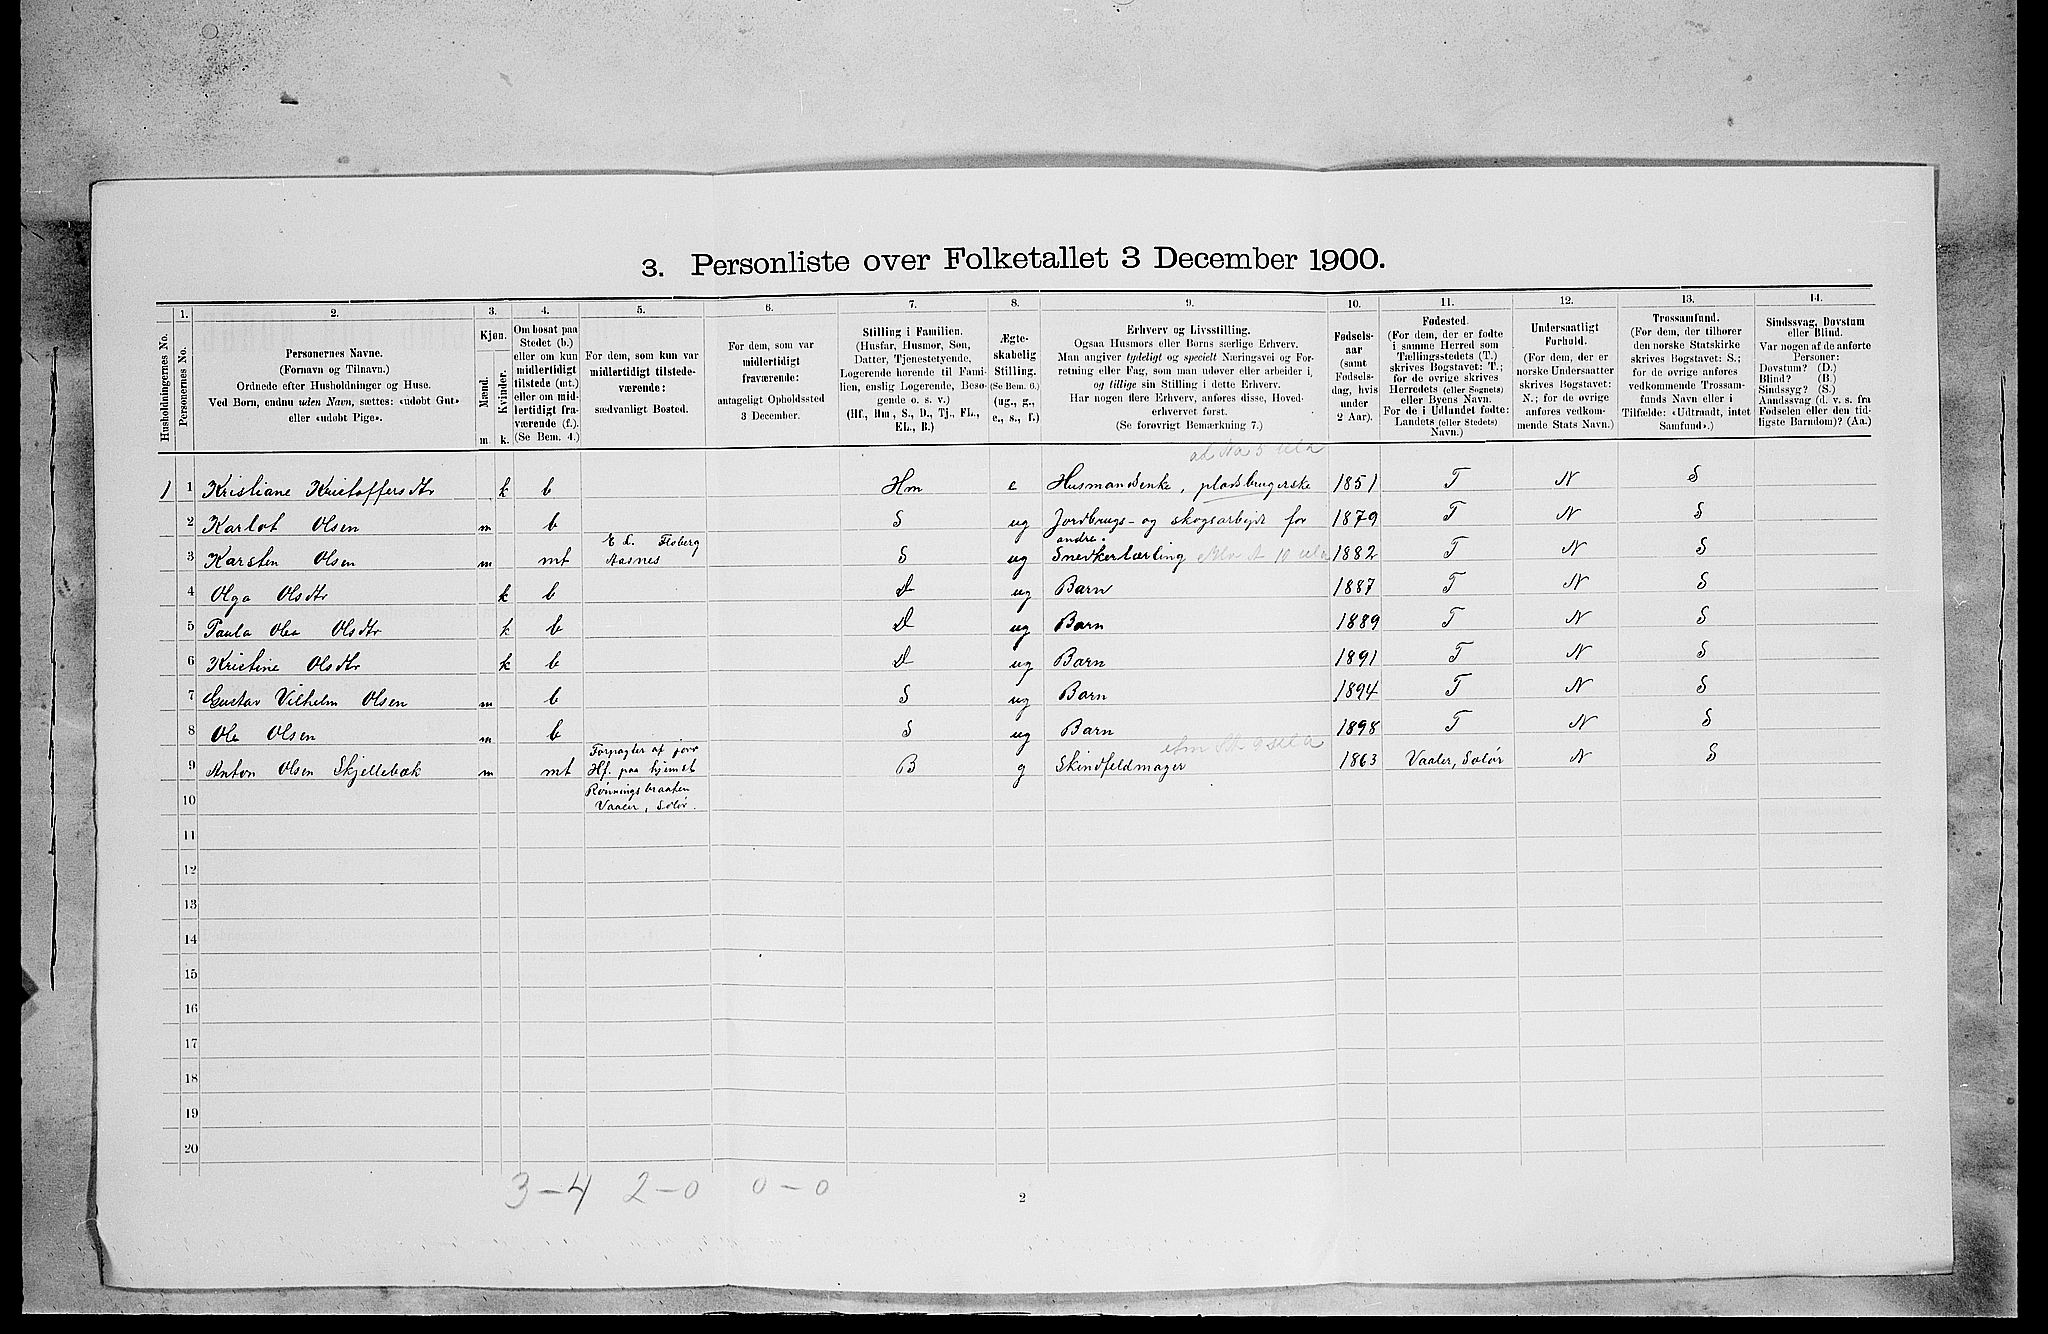 3. Personliste over Folketallet 3 December 1900.
Husholdningernes No.
1.
Personernes No.
2.
Personernes Navne.
(Fornavn og Tilnavn.)
Ordnede efter Husholdninger og Huse.
Ved Børn, endnu uden Navn, sættes: «udøbt Gut»
eller «udøbt Pige».
3.
Kjøn.
Mænd.
Kvinder.
m k.
4.
Om bosat paa
Stedet (b.)
eller om kun
midlertidigt
tilstede (mt.)
eller om mid-
lertidigt fra-
værende (f.).
(Se Bem. 4.)
5.
For dem, som kun var
midlertidigt tilstede-
værende:
sædvanligt Bosted.
6.
For dem, som var
midlertidigt
fraværende:
antageligt Opholdssted
3 December.
7.
Stilling i Familien.
(Husfar, Husmor, Søn,
Datter, Tjenestetyende,
Logerende hørende til Fami-
lien, enslig Logerende, Besø-
gende o. s. v.)
(Hf., Hm., S., D., Tj., FL.,
EL., B.)
8.
Ægte-
skabelig
Stilling.
(Se Bem. 6.)
(ug., g.,
e., s., f.)
9.
Erhverv og Livsstilling.
Ogsaa Husmors eller Børns særlige Erhverv.
Man angiver tydeligt og specielt Næringsvei og For-
retning eller Fag, som man udøver eller arbeider i,
og tillige sin Stilling i dette Erhverv.
Har nogen flere Erhverv, anføres disse, Hoved-
erhvervet først.
(Se forøvrigt Bemærkning 7.)
10.
Fødsels-
aar
(samt
Fødsels-
dag, hvis
under
2 Aar).
11.
Fødested.
(For dem, der er fødte
i samme Herred som
Tællingsstedets (T.)
skrives Bogstavet: T.;
for de øvrige skrives
Herredets (eller Sognets)
eller Byens Navn.
For de i Udlandet fødte:
Landets (eller Stedets)
Navn.)
12.
Undersaatligt
Forhold.
(For dem, der er
norske Undersaatter
skrives Bogstavet:
N.; for de øvrige
anføres vedkom-
mende Stats Navn.)
13.
Trossamfund.
(For dem, der tilhører
den norske Statskirke
skrives Bogstavet: S.;
for de øvrige anføres
vedkommende Trossam-
funds Navn eller i
Tilfælde: «Udtraadt, intet
Samfund».)
14.
Sindssvag, Døvstum
eller Blind.
Var nogen af de anførte
Personer:
Døvstum? (D.)
Blind? (B.)
Sindssyg? (S.)
Aandssvag (d. v. s. fra
Fødselen eller den tid-
ligste Barndom)? (Aa.)
1 1 Kristiane Kristoffersdtr k b Hm e Husmandsenke, pladsbrugerske 1851 T N S
2 Karlot Olsen m b S ug Jordbrugs- og skogsarbejde for andre. 1879 T N S
3 Karsten Olsen m mt E. L. Floberg Aasnes S ug Snedkerlærling 1882 T N S
4 Olga Olsdtr k b D ug Barn 1887 T N S
5 Paula Olea Olsdtr k b D ug Barn 1889 T N S
6 Kristine Olsdtr k b D ug Barn 1891 T N S
7 Gustav Vilhelm Olsen m b S ug Barn 1894 T N S
8 Ole Olsen m b S ug Barn 1898 T N S
9 Anton Olsen Skjellebæk m mt Forpagter af jord Hf. paa hjemst Rønningsbraaten Vaaler, Solør. B g Skindfeldmager 1863 Vaaler, Solør N S
10
11
12
13
14
15
16
17
18
19
20
3-4 2-0 0-0
2